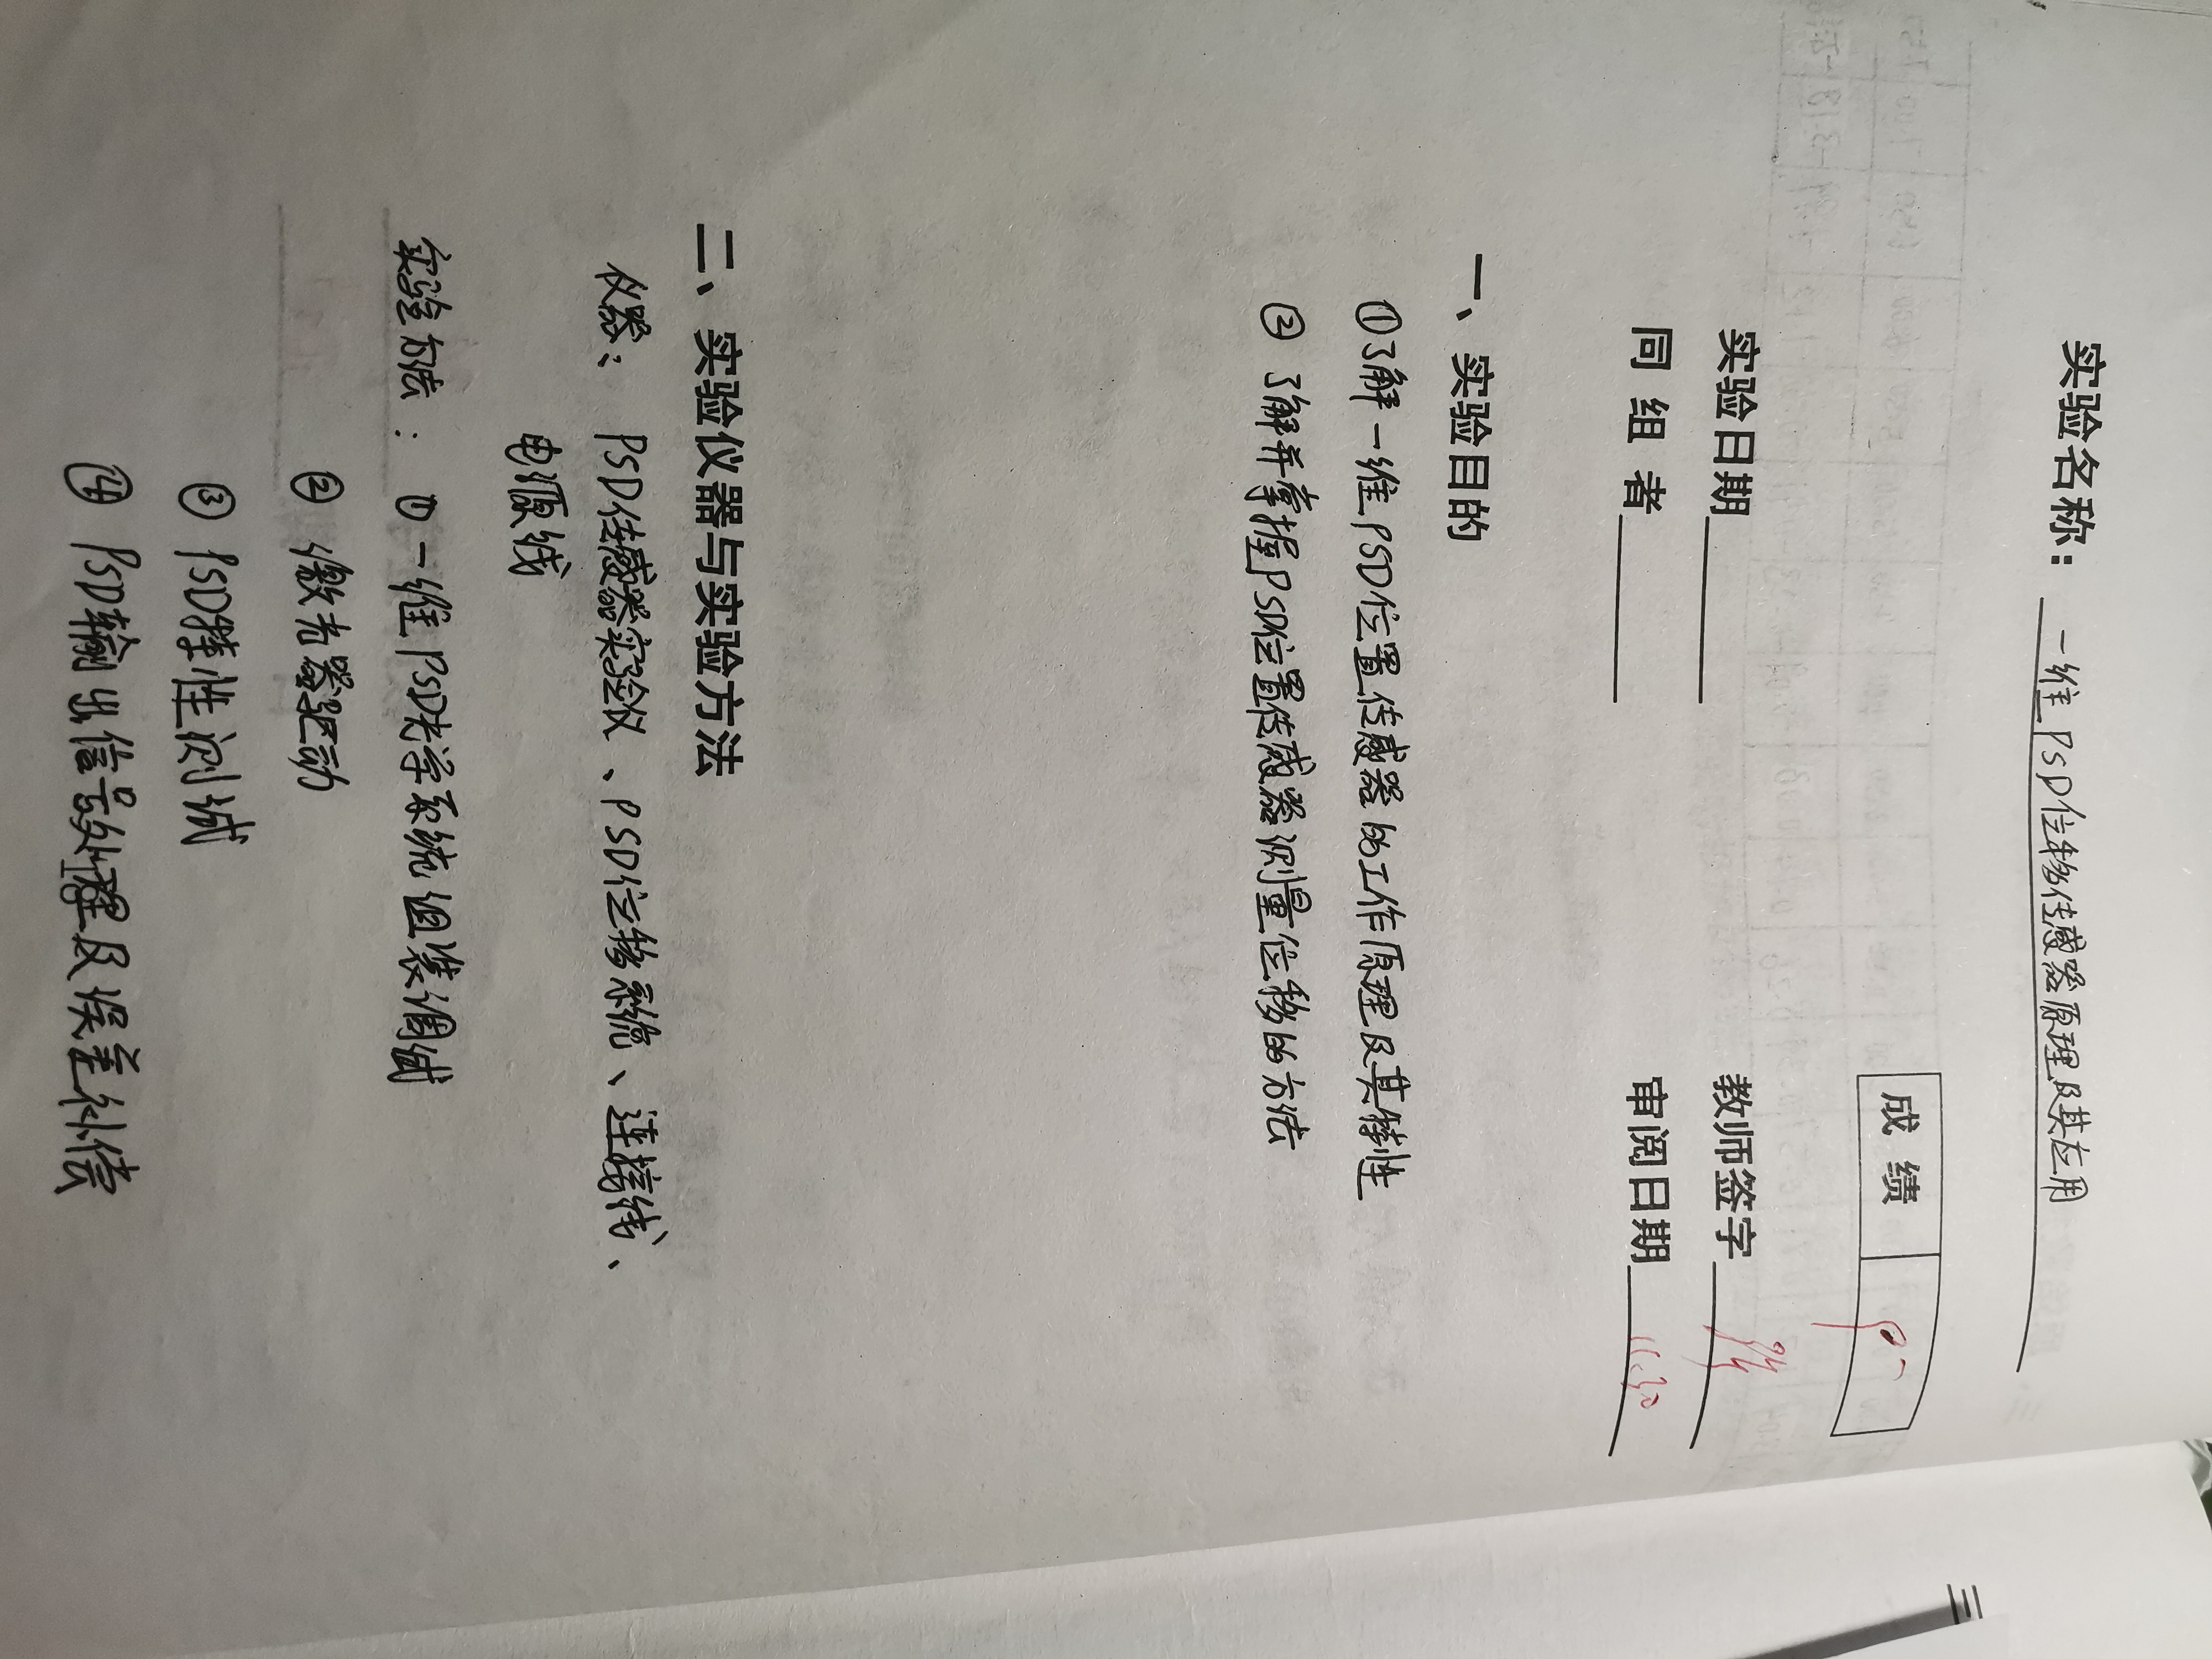 实验名称：一维PSD位移传感器原理及其应用
成绩
实验日期 教师签字
同组者 审阅日期 11.30
一、实验目的
①了解一维PSD位置传感器的工作原理及其特性
② 了解并掌握PSD位置传感器测量位移的方法
二、实验仪器与实验方法
仪器：PSD传感器实验仪、PSD位移系统、连接线、
电源线
实验方法：① 一维PSD光学系统组装调试
② 激光器驱动
③ PSD特性测试
④ PSD输出信号处理及误差补偿
三